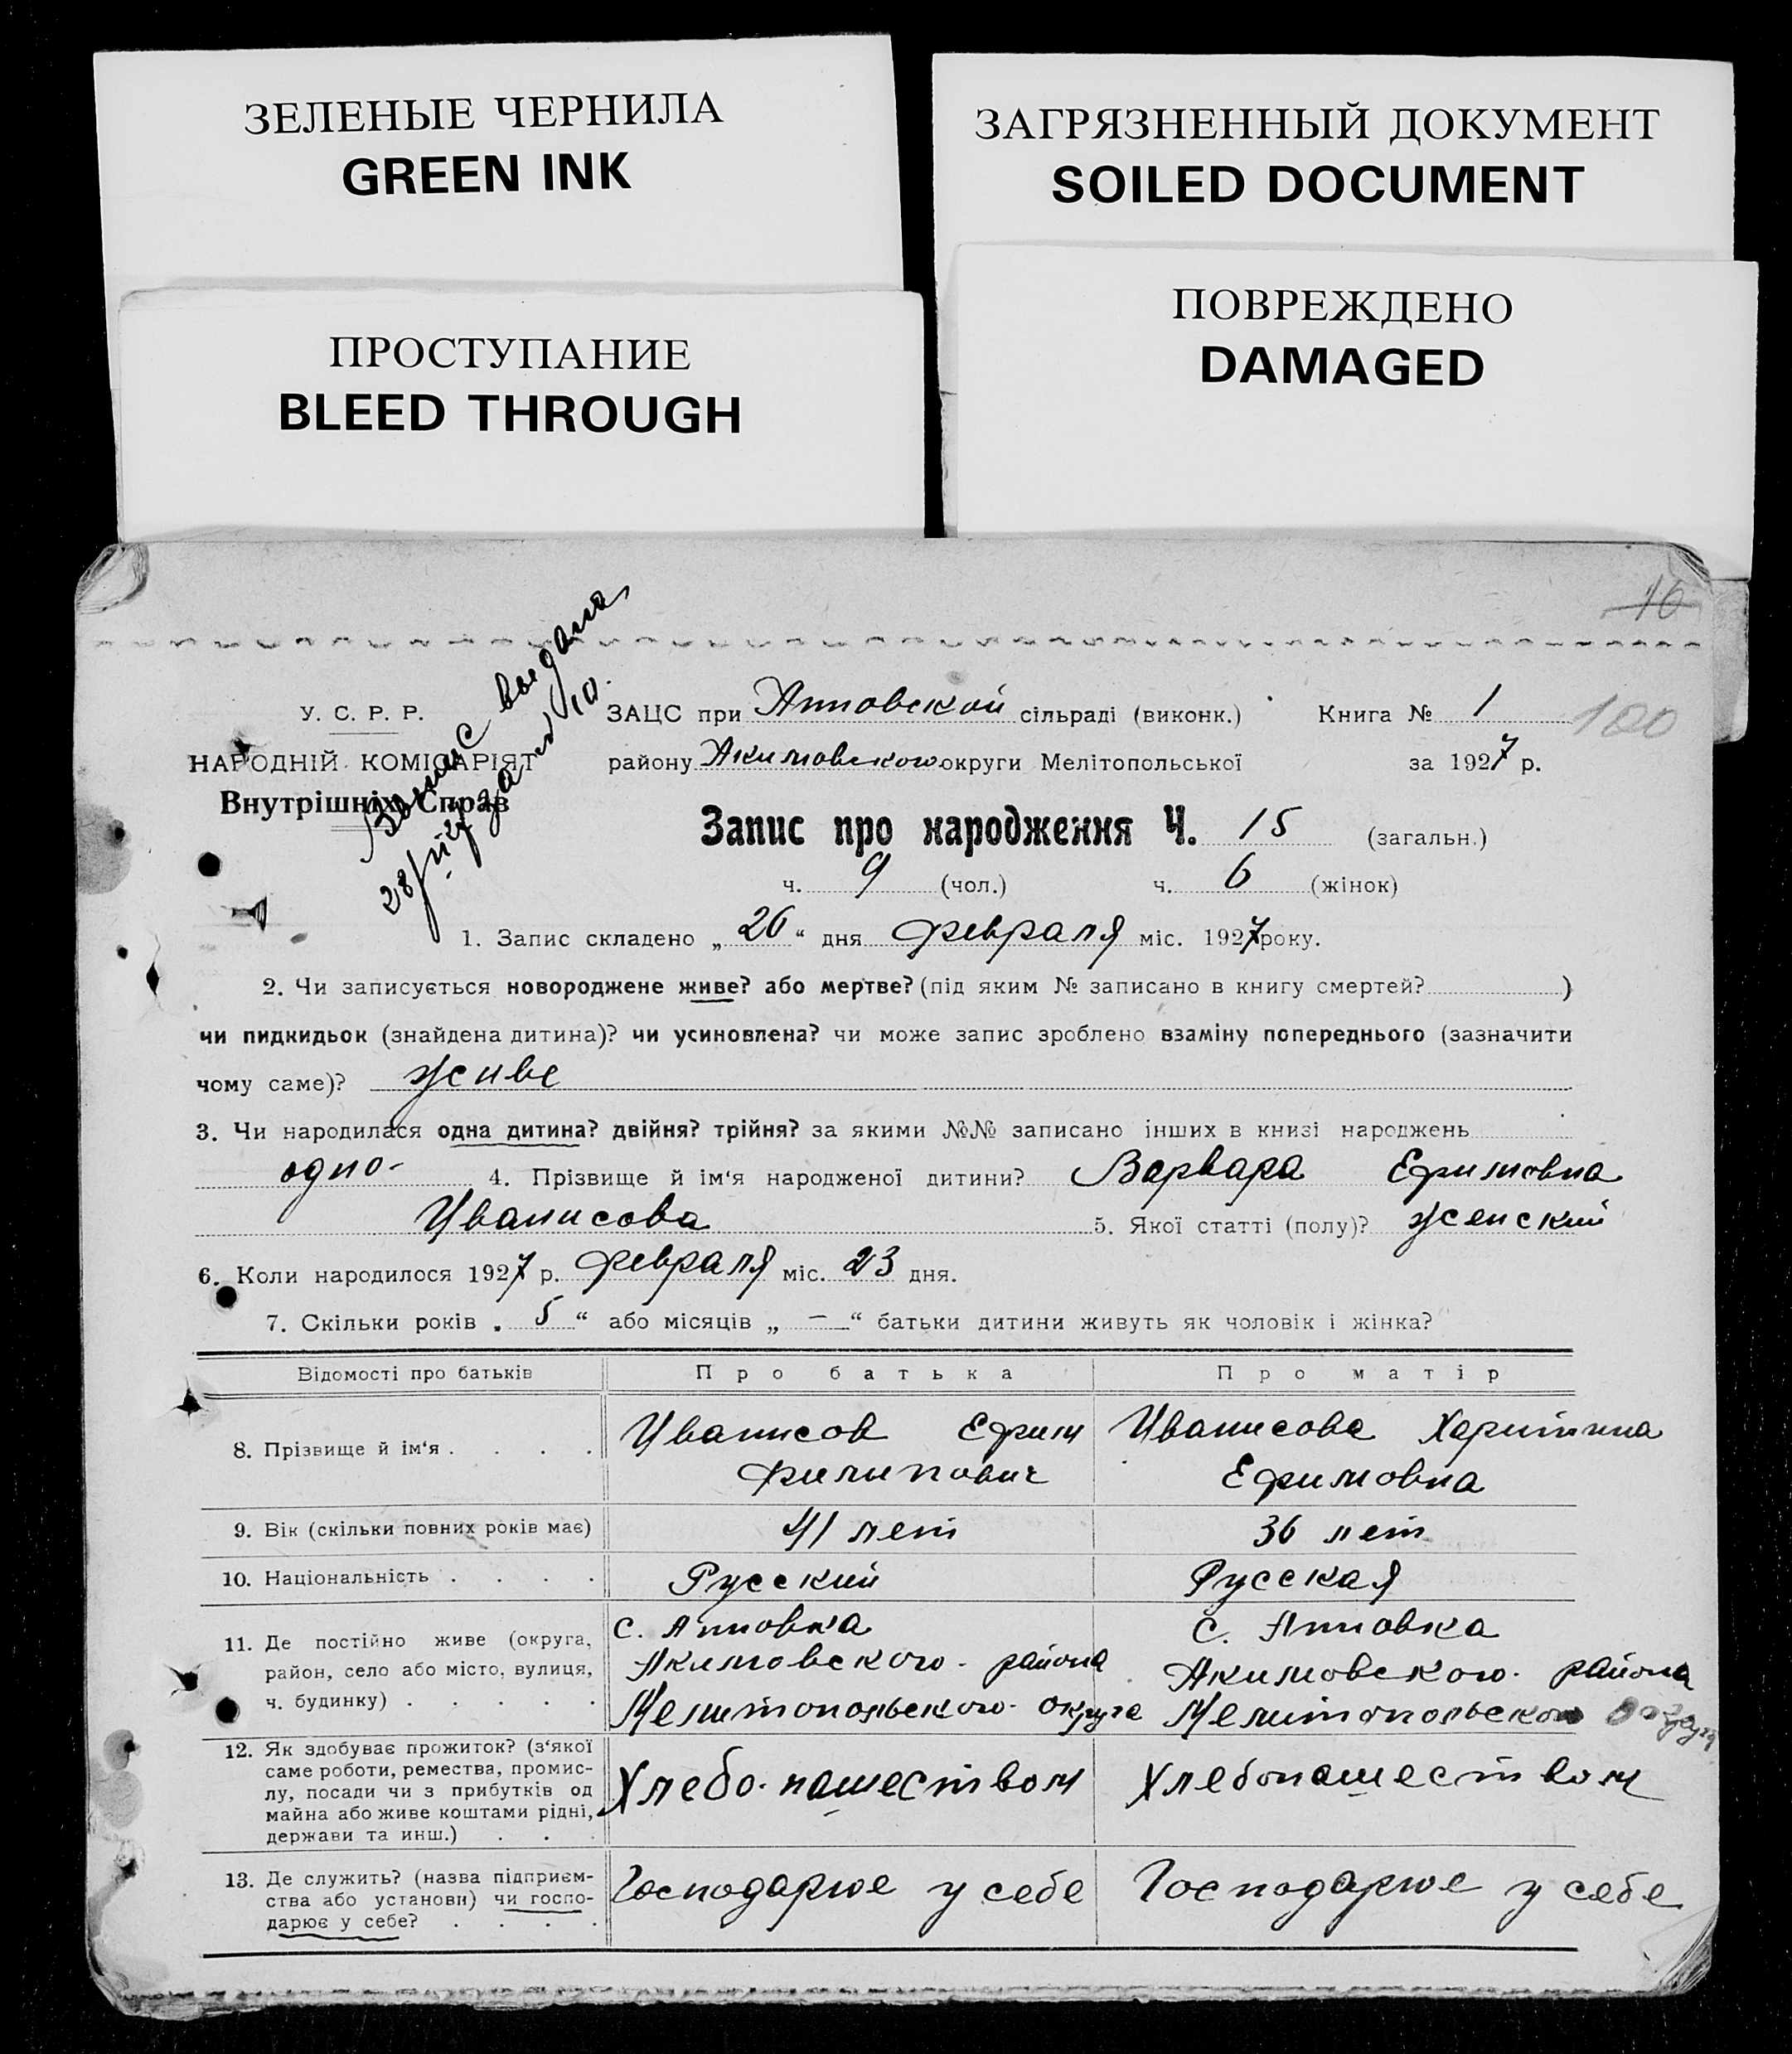 ЗЕЛЕНЫЕ ЧЕРНИЛА
GREEN INK
ЗАГРЯЗНЕННЫЙ ДОКУМЕНТ
SOILED DOCUMENT
ПРОСТУПАНИЕ
BLEED THROUGH
ПОВРЕЖДЕНО
DAMAGED
16
100
выдана
У. С. Р. Р.
НАРОДНІЙ КОМІСАРІЯТ
Внутрішніх Справ
ЗАЦС при Анновской сільраді (виконк.) Книга № 1
району Акимовского округи Мелітопольської за 1927 р.
Запис про народження Ч. 15 (загальн.)
ч. 9 (чол.) ч. 6 (жінок)
1. Запис складено „ 26 “ дня февраля міс. 1927 року.
2. Чи записується новороджене живе? або мертве? (під яким № записано в книгу смертей? )
чи пидкидьок (знайдена дитина)? чи усиновлена? чи може запис зроблено взаміну попереднього (зазначити
чому саме)? живе
3. Чи народилася одна дитина? двійня? трійня? за якими №№ записано інших в книзі народжень
одно- 4. Прізвище й ім‘я народженої дитини? Варвара Ефимовна
Иванисова 5. Якої статті (полу)? женский
6. Коли народилося 1927 р. февраля міс. 23 дня.
7. Скільки років „ 5 “ або місяців „ — “ батьки дитини живуть як чоловік і жінка?
Відомості про батьків Про батька Про матір
8. Прізвище й ім‘я . . . .
Иванисов Ефим
Филипович
Иванисова Харитина
Ефимовна
9. Вік (скільки повних років має) 41 лет 36 лет
10. Національність . . . . Русский Русская
11. Де постійно живе (округа,
район, село або місто, вулиця,
ч. будинку) . . . . .
с. Анновка
Акимовского района
Мелитопольского округа
с. Анновка
Акимовского района
Мелитопольского округа
12. Як здобуває прожиток? (з‘якої
саме роботи, ремества, промис-
лу, посади чи з прибутків од
майна або живе коштами рідні,
держави та инш.) . . .
Хлебо-пашеством
Хлебопашеством
13. Де служить? (назва підприєм-
ства або установи) чи госпо-
дарює у себе? . . . .
Господарюе у себе
Господарюе у себе